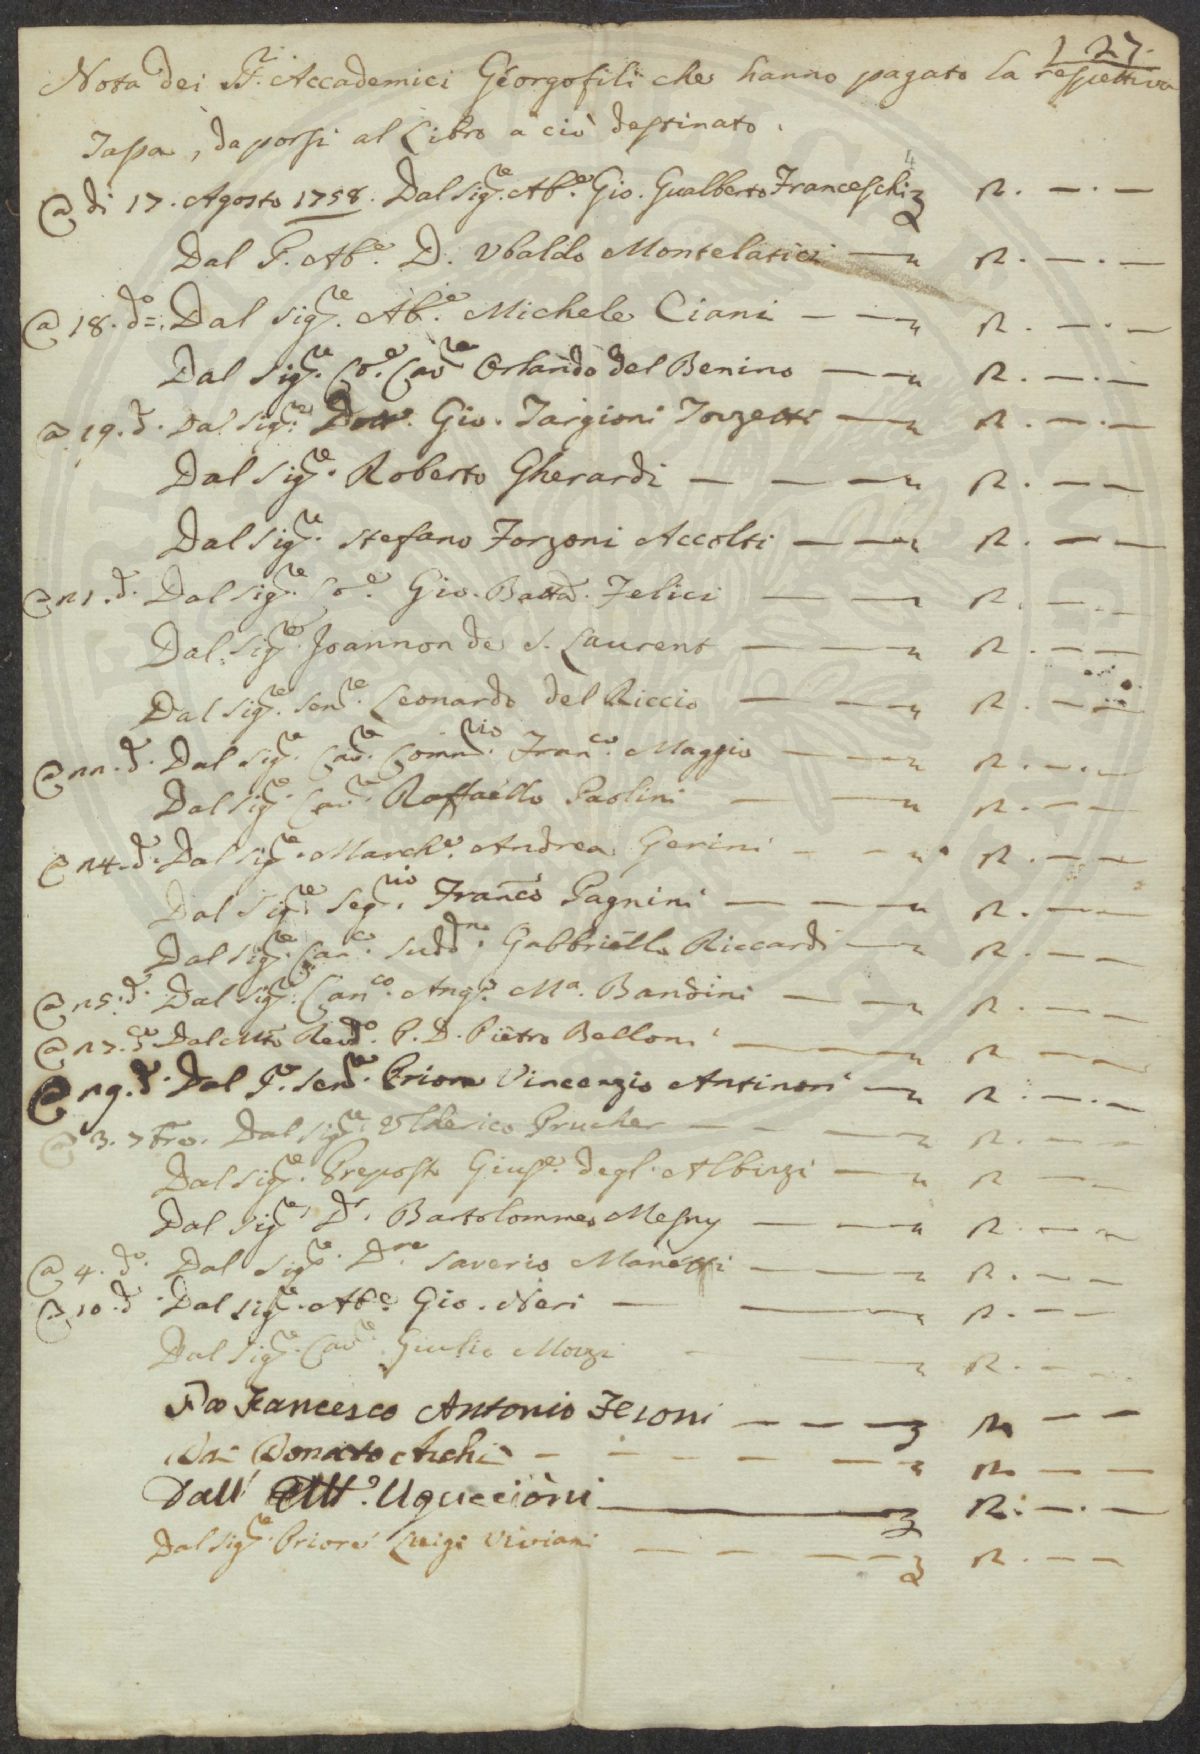 127.
Nota dei SS.ri Accademici Georgofili che hanno pagato la respettiva
Tassa, da porsi al Libro a ciò destinato.
4
@ di 17. Agosto 1758. Dal Sig.re Ab.e Gio. Gualberto Franceschi 2. — . —
Dal P. Ab.e D. Ubaldo Montelatici — 2. — . —
@ 18. d.o Dal Sig.re Ab.e Michele Ciani — — 2. — . —
Dal Sig.re Co.e Cav.re Orlando del Benino — — 2. — . —
@ 19. d. Dal Sig.re Dott. Gio. Targioni Tozzetti — 2. — . —
Dal Sig.re Roberto Gherardi — — — 2. — —
Dal Sig.re Stefano Forzoni Accolti — — 2. — —
@ 21. d. Dal Sig.re Co.e Gio. Batta. Felici — — 2. — . —
Dal Sig.re Joannon de S. Laurent — — 2. — —
Dal Sig.re Sen.re Leonardo del Riccio — — 2. — —
@ 22. d. Dal Sig.re Cav.re Comm.rio Fran.co Maggio — — 2. — . —
Dal Sig.re Cav.re Raffaello Paolini — — 2. — —
@ 24. d. Dal Sig.re March.e Andrea Gerini — — 2. — —
Dal Sig.re Seg.rio Franco Pagnini — — — 2. — —
Dal Sig.re Can.co Sudd.no Gabbriello Riccardi — 2. — —
@ 25. d. Dal Sig.re Can.co Ang. M.a Bandini — — 2. — —
@ 27. d. Dal Mto Revd.o P. D. Pietro Belloni — — 2. — —
@ 29. d. Dal S.re Sen.re Priore Vincenzio Antinori — 2. — . —
@ 3. 7bre. Dal Sig.re Ulderico Prucher — — — 2. — —
Dal Sig.re Preposto Gius.e degl'Albizzi — 2. — —
Dal Sig.re D.r Bartolommeo Mesny — — 2. — —
@ 4. d.o Dal Sig.re D.re Saverio Manetti — — 2. — —
@ 10. d. Dal Sig.re Ab.e Gio. Neri — — 2. — —
Dal Sig.re Cav.re Giulio Mozzi — — 2. — —
Francesco Antonio — — — 2 — —
Donato — — — 2. — —
Dall' Uguccioni — 2. — . —
Dal Sig.re Priore Luigi Viviani — — — — 2. — —